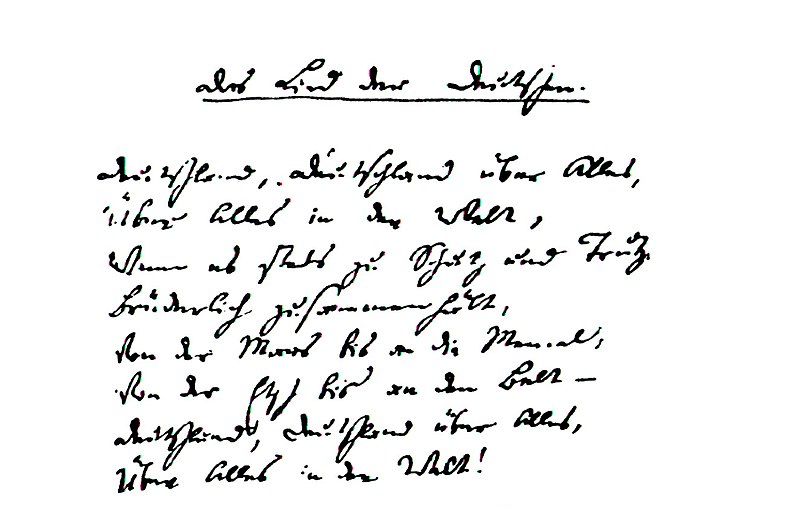 Das Lied der Deutschen.
Deutschland, Deutschland über Alles,
Über Alles in der Welt,
Wenn es stets zu Schutz und Trutz
Brüderlich zusammenhält,
Von der Maas bis an die Memel,
Von der Etsch bis an den Belt –
Deutschland, Deutschland über Alles,
Über Alles in der Welt!